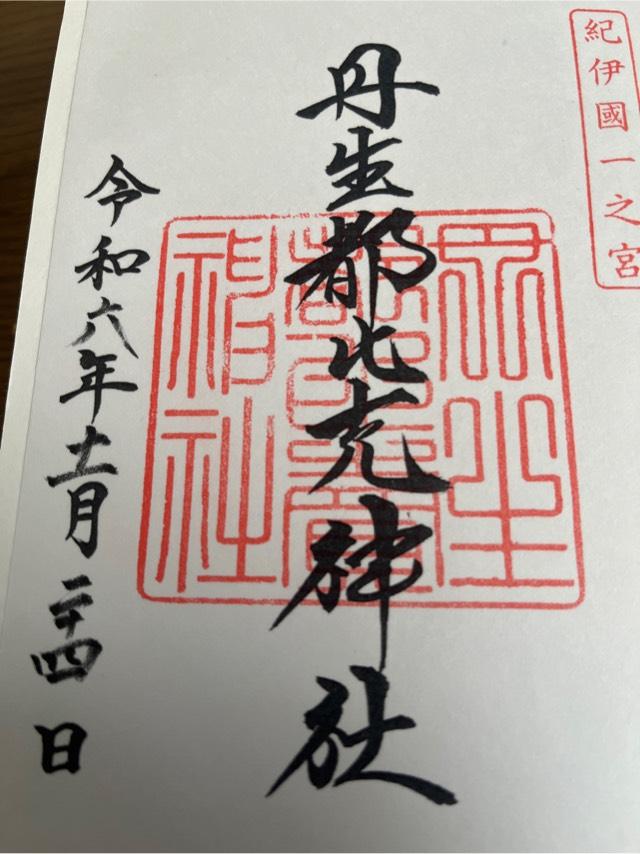 紀伊國一之宮
丹生都比売神社
丹生
都比賣
神社
令和六年十一月二十四日